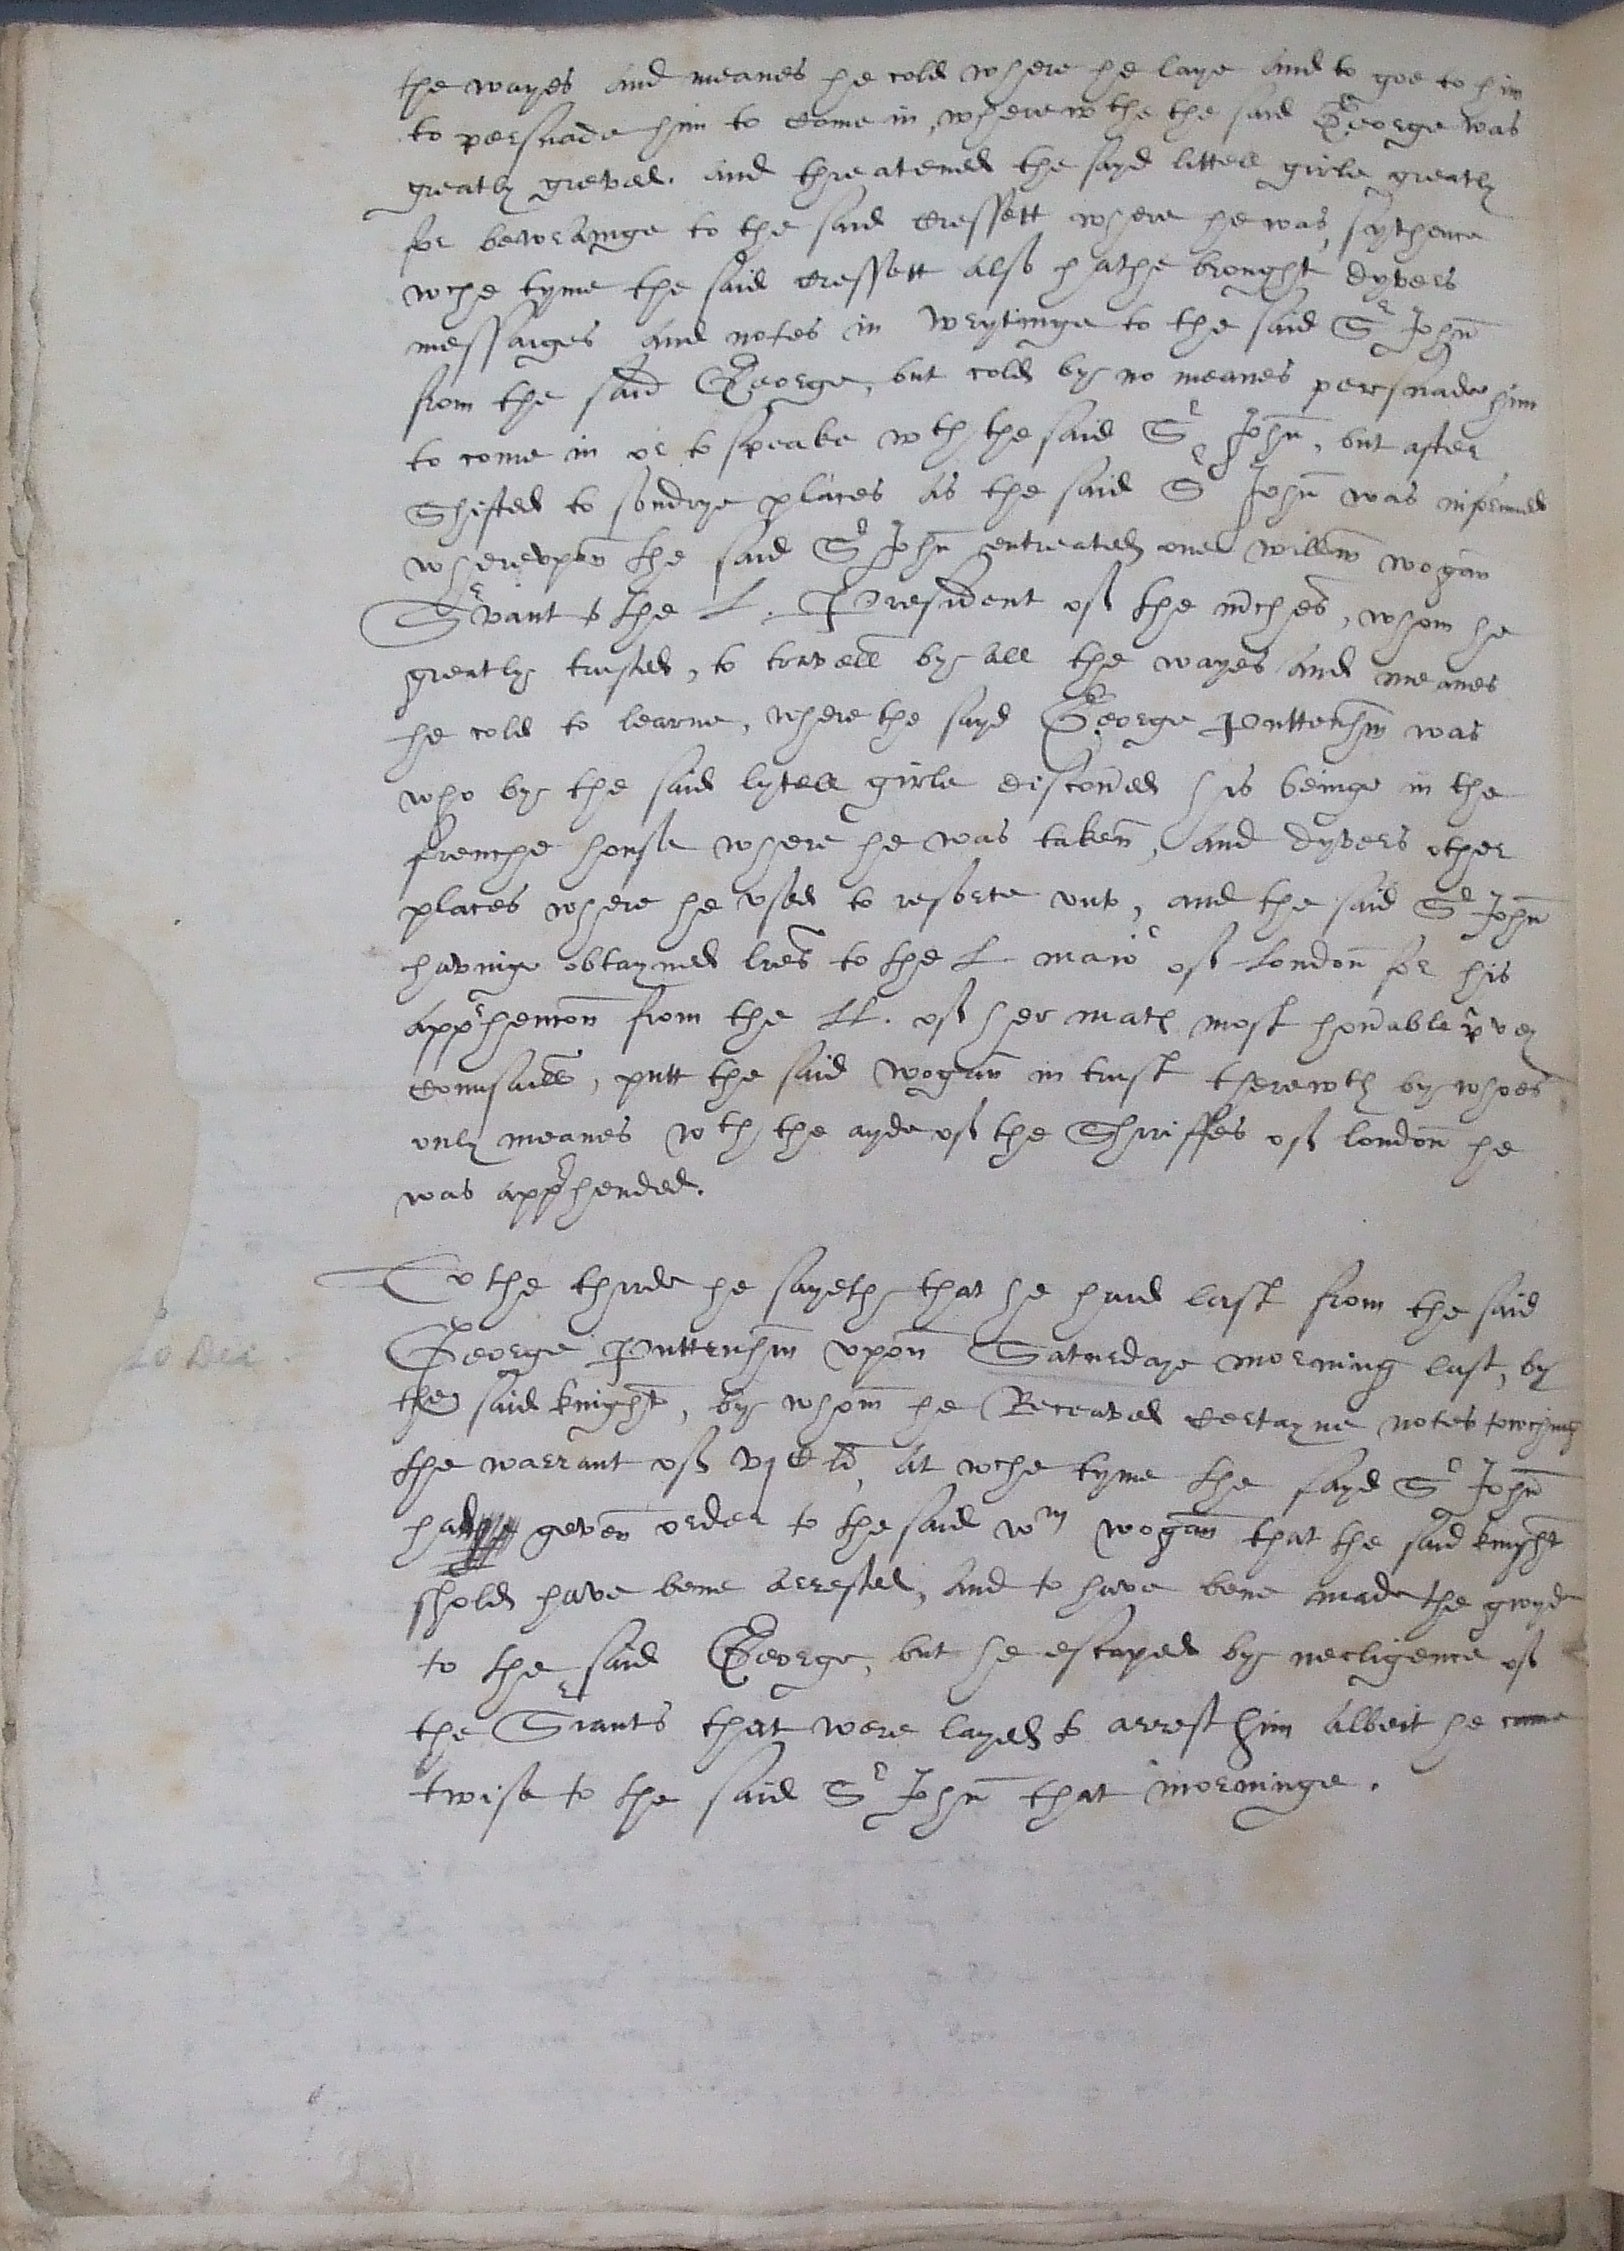 the wayes and meanes he cold where he laye and to goe to him
to perswade him to come in, wherewthe the said George was
greatly greved. and threatened the sayd littell girle greatly
for bewrainge to the said Cressett where he was, sythence
wche tyme the said Cressett also hathe brought dyvers
messaiges and notes in wrytinge to the said Sr John
from the said George, but cold by no meanes perswade him
to come in or to speake wth the said Sr John, but after
Shifted to sondrye places as the said Sr John was informed
wherevpon the said Sr John entreated one Willm Wogan
Srvant to the L. President of the mches, whom he
greatly trusted, to travell by all the wayes and meanes
he cold to learne, where the sayd George Puttenhm was
who by the said lytell girle discoued his beinge in the
frenche house where he was taken, and dyvers other
places where he vsed to resorte vnto, and the said Sr John
havinge obtayned lres to the L maior of London for his
apprhencon from the LL. of her matie most honable prvey
Counsaill, putt the said Wogan in trust therewth by whoes
only meanes wth the ayde of the Shriffes of london he
was apprhended.
To the thirde he sayeth that he hard last from the said
George Puttenhm vpon Saturdaye morning last, by
the said knight, by whom he Receaved certayne notes towching
the warrant of vjC li, at wche tyme the sayd Sr John
had geven order to the said Wm Wogan that the said knight
shold have bene arrested, and to have bene made the gwyde
to the said George, but he escaped by necligence of
the Srants that were layed to arrest him albeit he came
twise to the said Sr John that morninge.
20 Dec.